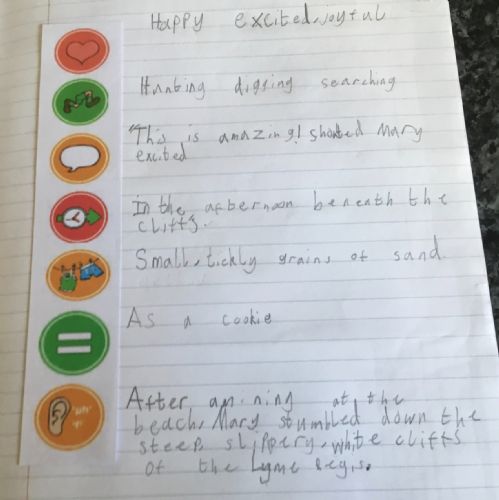 Happy excited, joyful
Hunting digging searching
"This is amazing! shouted Mary
excited
In the afternoon beneath the
cliffs.
Small, tickly grains of sand.
As a cookie
After at the
beach, Mary stumbled down the
steep, slippery, white cliffs
of the Lyme Regis.